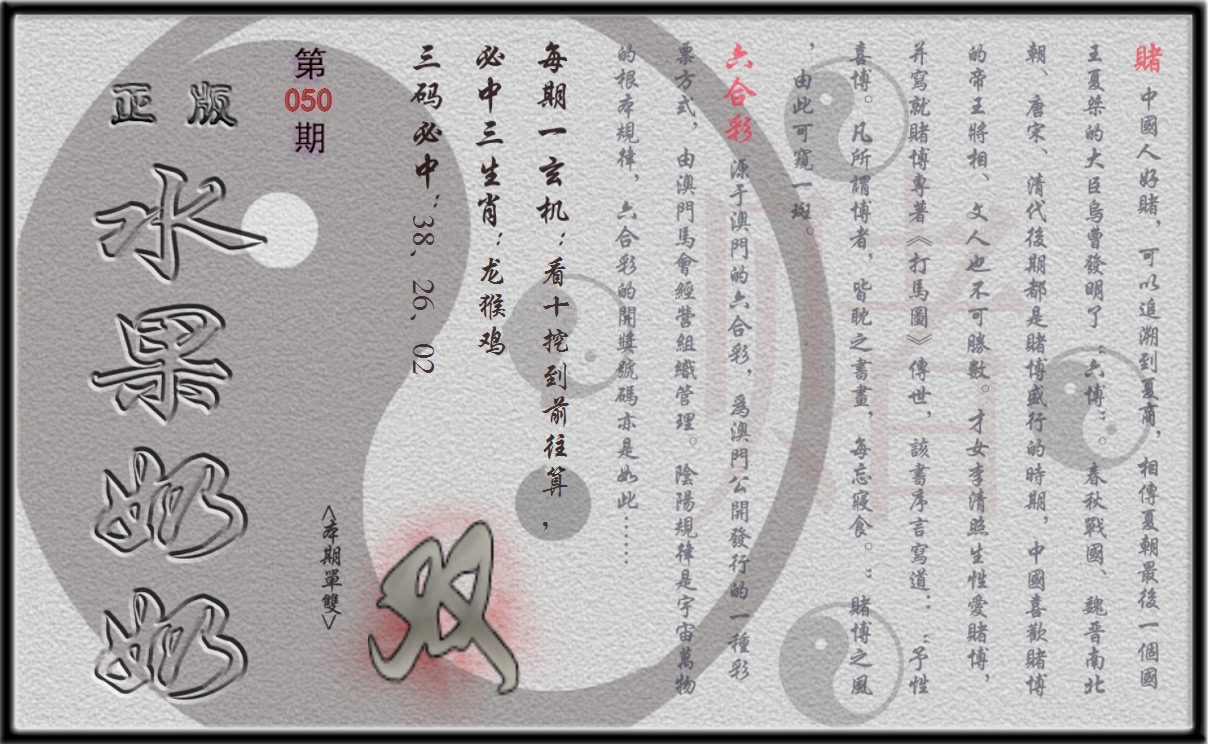 賭 中國人好賭，可以追溯到夏商，相傳夏朝最後一個國
王夏桀的大臣烏曹發明了"六博"。春秋戰國、魏晋南北
朝、唐宋、清代後期都是賭博盛行的時期，中國喜歡賭博
的帝王將相、文人也不可勝數。才女李清照生性愛賭博，
并寫就賭博專著《打馬圖》傳世，該書序言寫道："予性
喜博。凡所謂博者，皆耽之書畫，每忘寢食。"賭博之風
，由此可窺一斑。
六合彩 源于澳門的六合彩，爲澳門公開發行的一種彩
票方式，由澳門馬會經營組織管理。陰陽規律是宇宙萬物
的根本規律，六合彩的開獎號碼亦是如此……
每期一玄机：看十挖到前往算，
必中三生肖：龙猴鸡
三码必中：38、26、02
双
<本期單雙>
第
050
期
正版
水果奶奶